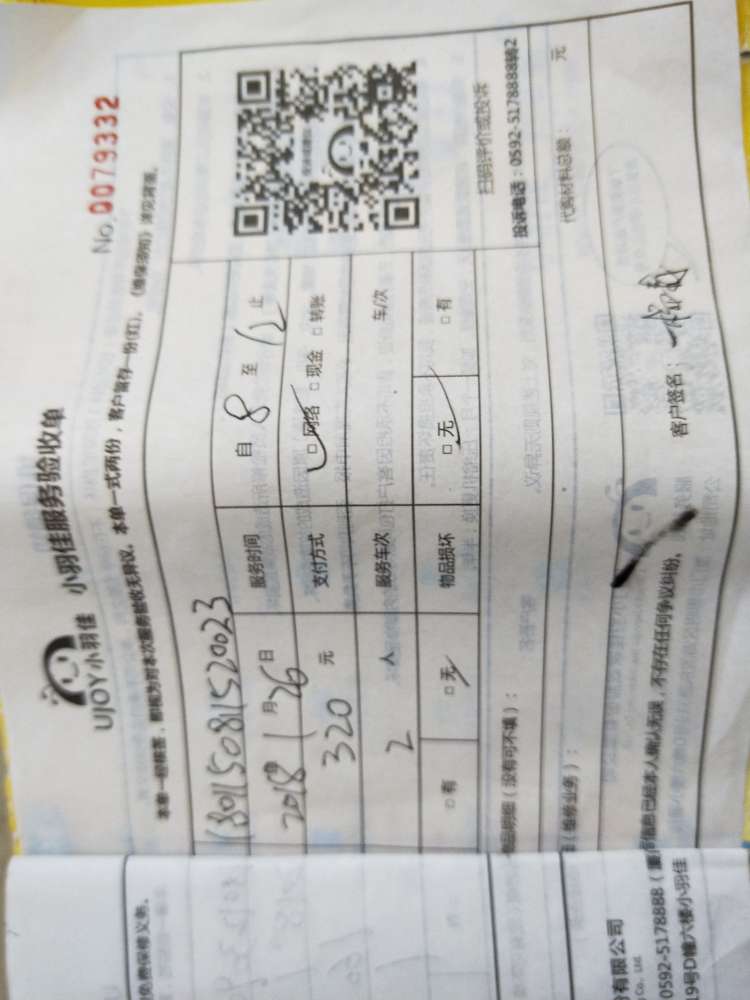 No. 0079332
UJOY小羽佳 小羽佳服务验收单
本单一经签署，即视为对本次服务验收无异议。本单一式两份，客户留存一份(红)。
180115081520023
2018年1月26日 服务时间 自8至12止
320元 支付方式 □网络 □现金 □转账
2人 服务车次 车/次
□有 □无 物品损坏 □无 □有
扫码评价或投诉
投诉电话：0592-5178888转2
品明细（没有可不填）：
代购材料总额： 元
（维修业务）：
信息已经本人确认无误，不存在任何争议纠纷。
客户签名：
免费保修义务。
有限公司
Co., Ltd.
0592-5178888（
19号D幢六楼小羽佳